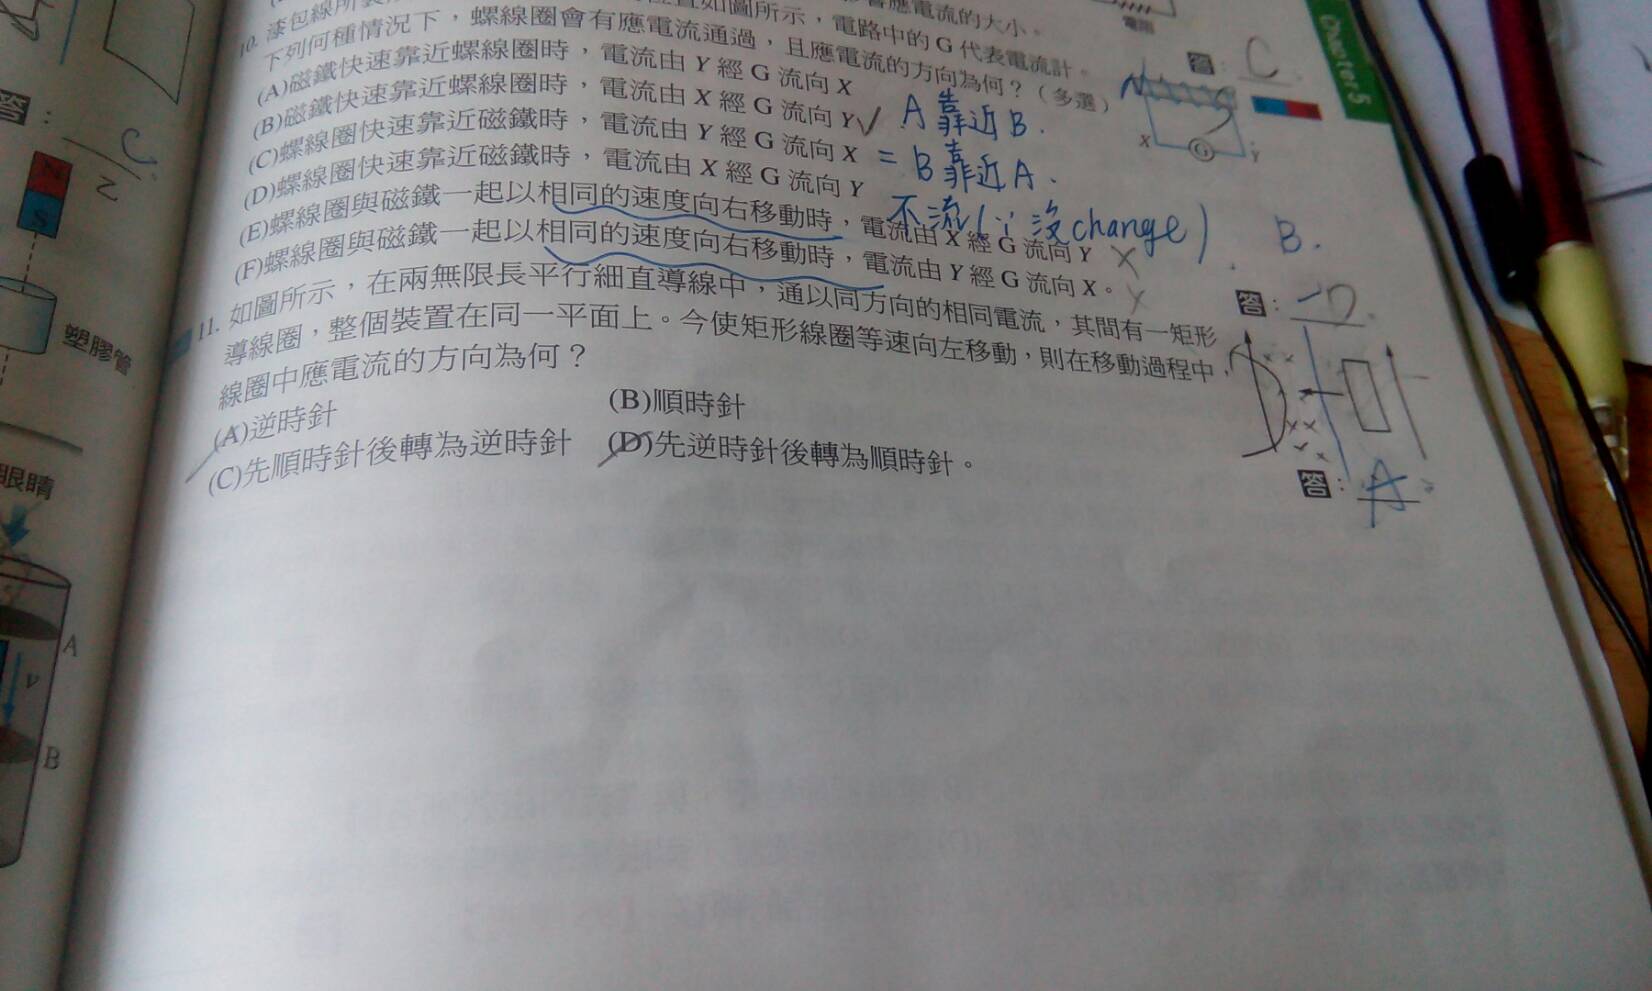 響應電流的大小。
電路中的 G 代表電流計。
10. 下列何種情況下，螺線圈會有應電流通過，且應電流的方向為何？（多選）
答： C
(A)磁鐵快速靠近螺線圈時，電流由 Y 經 G 流向 X
(B)磁鐵快速靠近螺線圈時，電流由 X 經 G 流向 Y ✓ A 靠近 B.
(C)螺線圈快速靠近磁鐵時，電流由 Y 經 G 流向 X = B 靠近 A.
(D)螺線圈快速靠近磁鐵時，電流由 X 經 G 流向 Y
不流(∵沒 change)
(E)螺線圈與磁鐵一起以相同的速度向右移動時，電流由 X 經 G 流向 Y X
(F)螺線圈與磁鐵一起以相同的速度向右移動時，電流由 Y 經 G 流向 X。 X
B.
答： D
11. 如圖所示，在兩無限長平行細直導線中，通以同方向的相同電流，其間有一矩形
導線圈，整個裝置在同一平面上。今使矩形線圈等速向左移動，則在移動過程中，
線圈中應電流的方向為何？
(A)逆時針 (B)順時針
(C)先順時針後轉為逆時針 (D)先逆時針後轉為順時針。
答： A
Chapter 5
N
X G Y
答： C
N
S
塑膠管
眼睛
A
v
B